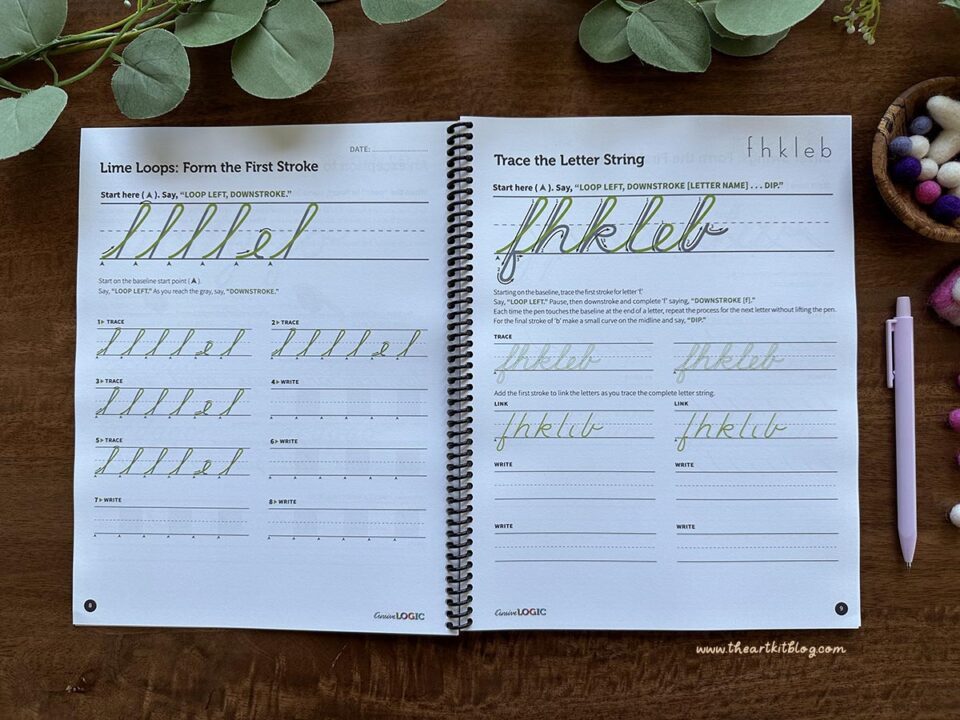 DATE:
Lime Loops: Form the First Stroke
Start here ( ). Say, “LOOP LEFT, DOWNSTROKE.”
l l l l e l
Start on the baseline start point ( ).
Say, “LOOP LEFT.” As you reach the gray, say, “DOWNSTROKE.”
1 TRACE
l l l l e l
2 TRACE
l l l l e l
3 TRACE
l l l l e l
4 WRITE
5 TRACE
l l l l e l
6 WRITE
7 WRITE
8 WRITE
8
CursiveLOGIC
f h k l e b
Trace the Letter String
Start here ( ). Say, “LOOP LEFT, DOWNSTROKE [LETTER NAME] . . . DIP.”
fhkleb
Starting on the baseline, trace the first stroke for letter ‘f.’
Say, “LOOP LEFT.” Pause, then downstroke and complete ‘f’ saying, “DOWNSTROKE [f].”
Each time the pen touches the baseline at the end of a letter, repeat the process for the next letter without lifting the pen.
For the final stroke of ‘b’ make a small curve on the midline and say, “DIP.”
TRACE
fhkleb
fhkleb
Add the first stroke to link the letters as you trace the complete letter string.
LINK
fhkleb
LINK
fhkleb
WRITE
WRITE
WRITE
WRITE
CursiveLOGIC
9
www.theartkitblog.com